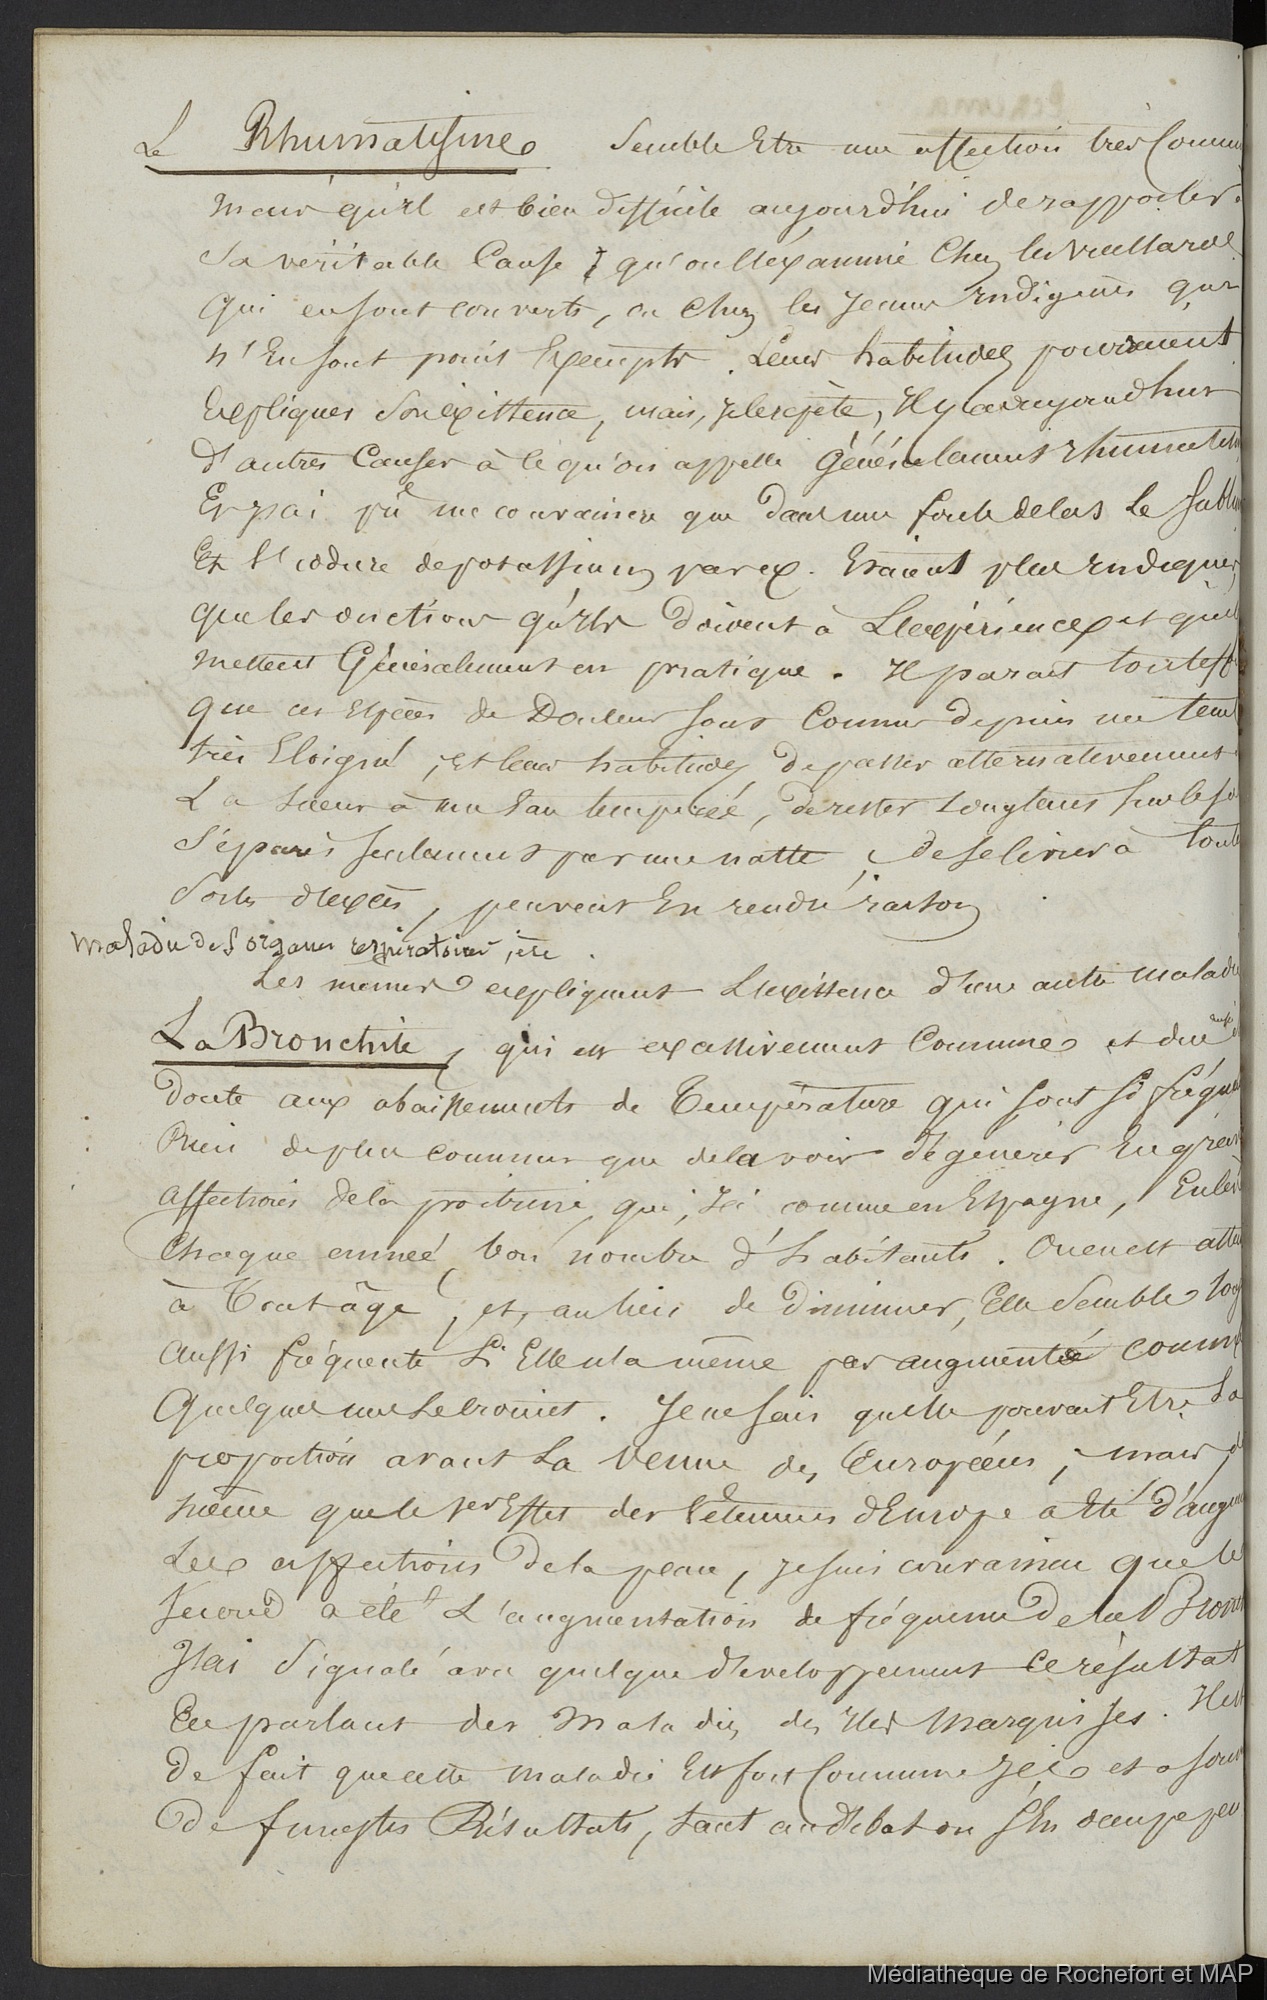 Le Rhumatisme semble Etre une affection très Commu
mais qu'il est bien difficile aujourd'hui de rapporter
Sa véritable Cause ; qu'on l'examine Chez les vieillards
qui en sont couverts, ou chez les Jeunes Indigènes qui
n'En sont point Exempts. Leurs habitudes pourraient
Expliquer son existence, mais, je le répète, Il y a aujourd'hui
d'autres Causes à ce qu'on appelle Généralement rhumatis
Et j'ai pu me convaincre que dans une foule de cas Le Subli
Et l'iodure de potassium par ex. Etaient plus Indiqués
que les onctions qu'ils doivent à L'expérience et qu'il
mettent Généralement en pratique. Il parait toutefo
que ces Espèces de Douleurs sont Connues depuis un tem
très Eloigné, et leurs habitudes de passer alternativement
La sueur à une Eau tempérée, de rester Longtems sur le so
Séparés seulement par une natte, de se livrer à toute
Sortes d'Excès, peuvent En rendre raison
maladies des organes respiratoires, etc.
Les mêmes expliquent L'existence d'une autre maladie
La Bronchite, qui est excessivement Commune et due sans
doute aux abaissements de Température qui sont si fréque
Rien de plus commun que de la voir dégénérer En grav
affections de la poitrine, qui, Ici comme en Espagne, Enlèv
Chaque année bon nombre d'habitants. On en est attei
à Tout âge, et, au lieu de diminuer, Elle Semble tou
aussi fréquente si Elle n'a même pas augmenté comme
Quelques uns Le croient. Je ne sais quelle pouvait Etre La
proportion avant La venue des Européens, mais, d
même que le 1er Effet des vêtemens d'Europe a Eté d'augme
Les affections de la peau, je suis convaincu que le
Second a été L'augmentation de fréquence de la Bronch
J'ai Signalé avec quelque développement ce résultat
En parlant des Maladies des Iles Marquises. Il est
de fait que cette maladie Est fort Commune Ici et a sou
de funestes Résultats, tant au début on s'En occupe peu
Médiathèque de Rochefort et MAP